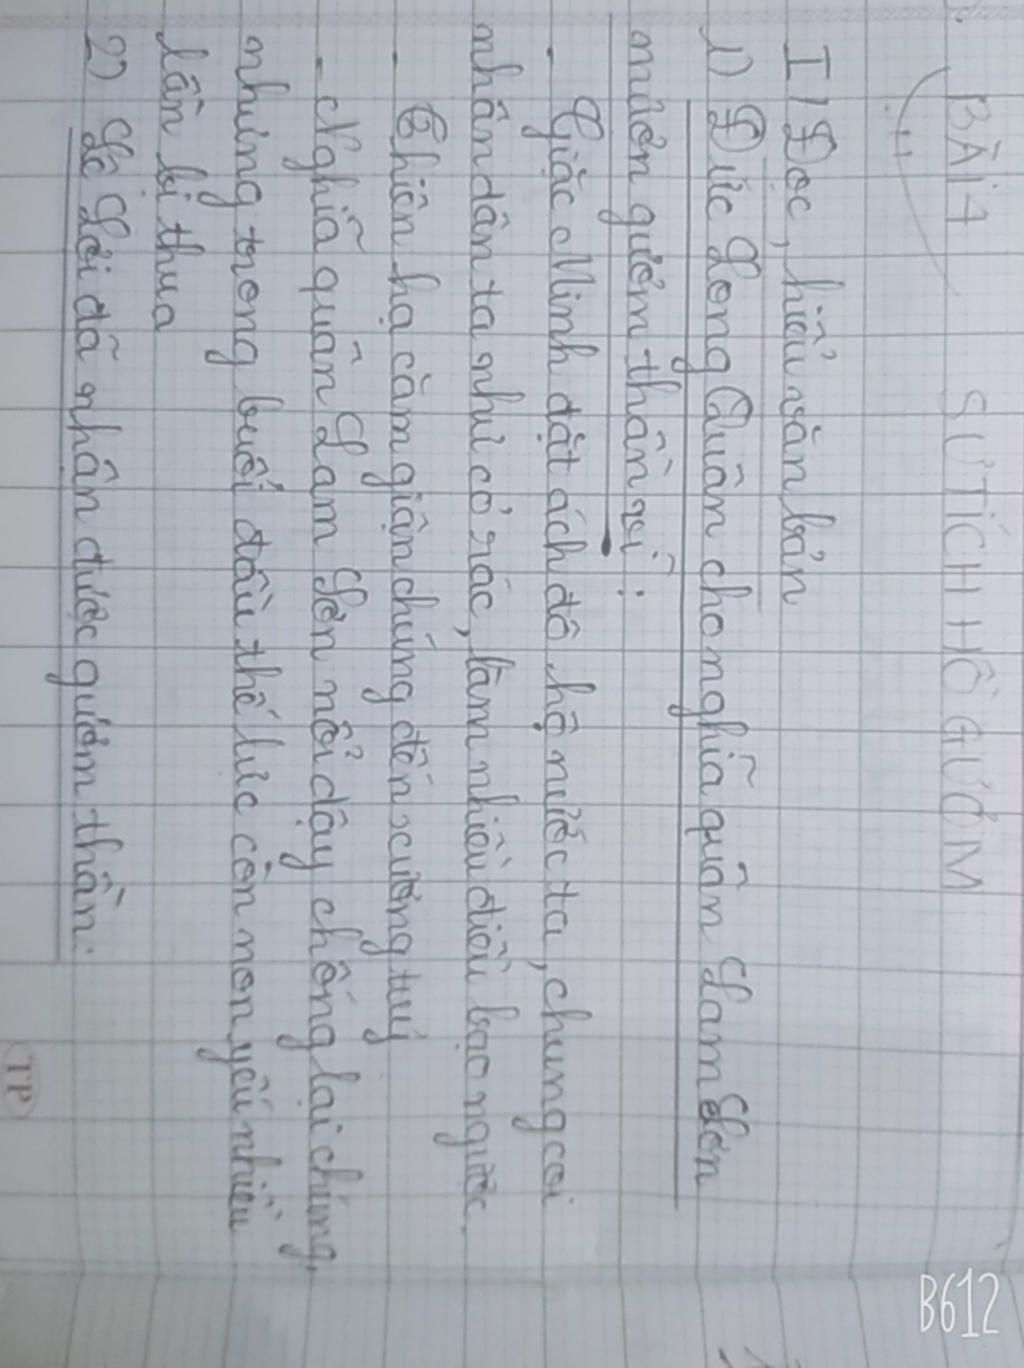 BÀI 4 SỰ TÍCH HỒ GƯƠM
I/ Đọc, hiểu văn bản
1) Đức Long Quân cho nghĩa quân Lam Sơn
mượn gươm thần vì:
- Giặc Minh đặt ách đô hộ nước ta, chung coi
nhân dân ta như cỏ rác, làm nhiều điều bạo ngược.
- Thiên hạ căm giận chúng đến xương tuỷ
- Nghĩa quân Lam Sơn nổi dậy chống lại chúng,
nhưng trong buổi đầu thế lực còn non yếu nhiều
lần bị thua
2) Lê Lợi đã nhận được gươm thần:
TP
B612